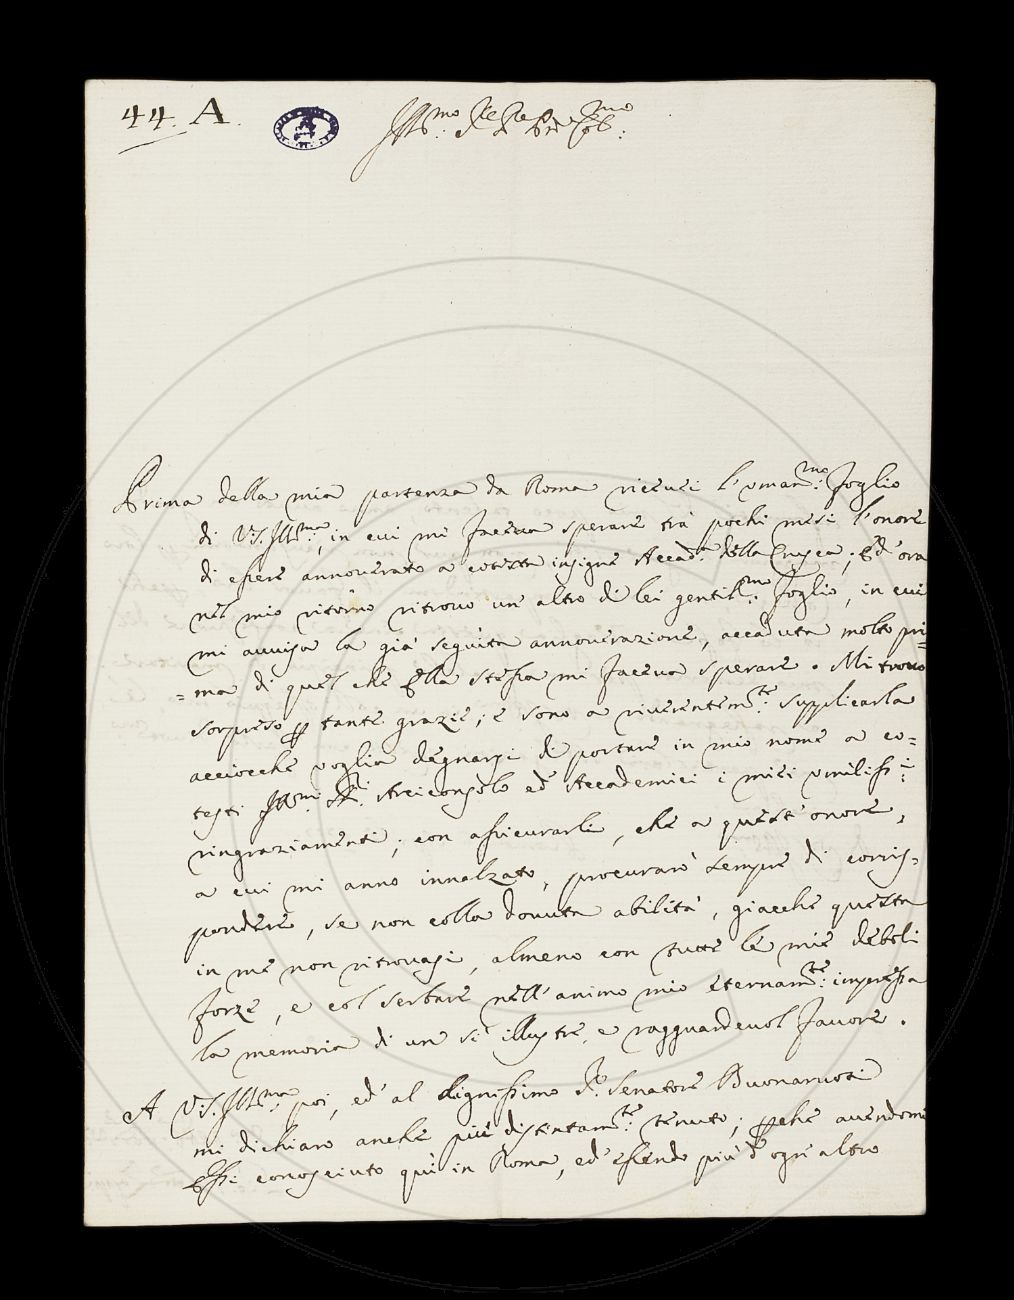 44. A.
Ill.mo Sig.re Sig.re Pron Col.mo
Prima della mia partenza da Roma riceuei l'uman.mo Foglio
di V.S. Ill.ma, in cui mi faceua sperare trà pochi mesi l'onore
di essere annouerato a cotesta insigne Accad.a della Crusca; Ed' ora
nel mio ritorno ritrouo un' altro di lei gentil.mo Foglio, in cui
mi auuisa la già seguita annouerazione, accaduta molto pri=
=ma di quel che Ella stessa mi faceua sperare. Mi trouo
sorpreso p tante grazie; e sono a riuerentem.te supplicarla
acciocche voglia degnarsi di portare in mio nome a co=
testi Ill.mi SS.ri Arciconsolo ed' Accademici i miei umiliss.i
ringraziamenti; con assicurarli, che a quest' onore,
a cui mi anno innalzato, procurarò sempre di corris=
pondere, se non colla douuta abilità, giacche questa
in me non ritrouasi, almeno con tutte le mie deboli
forze, e col serbare nell' animo mio eternam.te impressa
la memoria di un sì illustre, e ragguardeuol fauore.
A V.S. Ill.ma poi, ed' al dignissimo S.r Senatore Buonaruoti
mi dichiaro anche più distintam.te tenuto; pche auendomi
Essi conosciuto quì in Roma, ed' essendo più d' ogn' altro